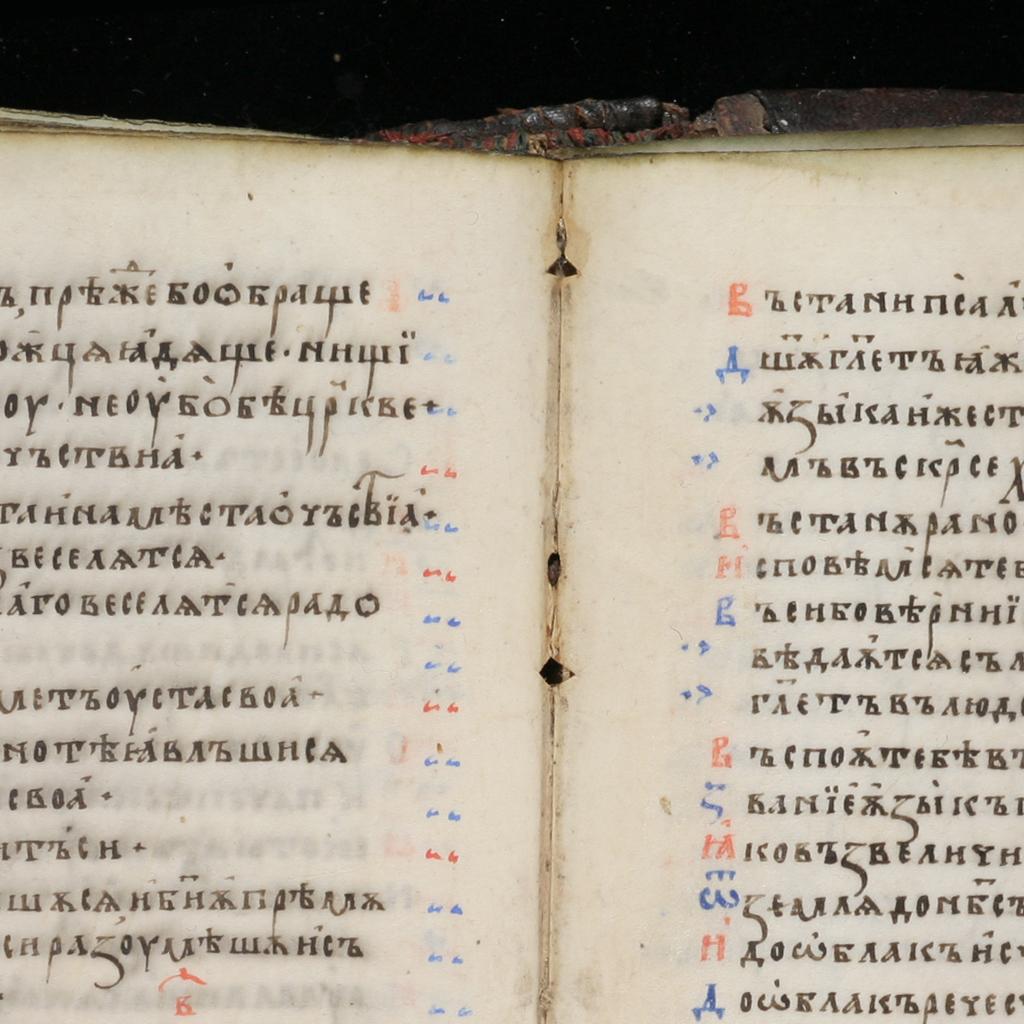 ъ, прѣже бо ѻбраще
ѫжцѧ ꙗдѧще · нищї
оу · не оубо бѣ црк҃ве ·
чъствна ·
таи на мѣста ѻчъст҃вїа ·
веселѧтсѧ ·
аго веселѧтсѧ радо
метъ оуста своа ·
но тѣ ꙗвльшисѧ
своа ·
итъ си ·
шѫсѧ и бн҃иѫ прѣмѫ
си разоумѣшѫ ис ъ
в
Въстани пса л
Дш҃ѫ гл҃етъ ꙗж
ѫзыка иже ст
мъ въскр҃се х
Въста нѫ рано
Исповѣмсѧ теб
Въси бо вѣрнїи
вѣдаѫтсѧ съ л
гл҃етъ въ люд
Въспоѫ тебѣ в
Званїе ѫзыкъ
Ꙗковъ звеличи
Ѿ землѧ до нб҃съ
И до ѡблакъ ис
До ѡблакъ рече с